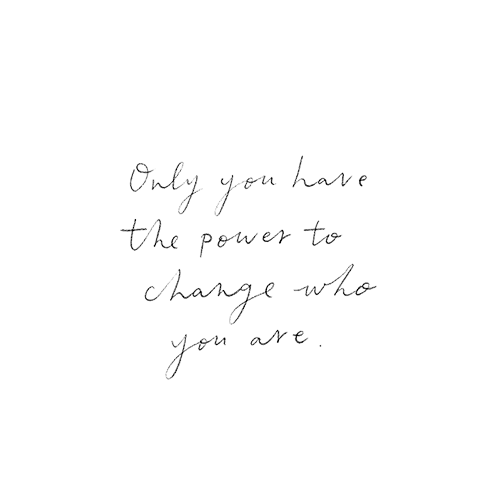 Only you have
the power to
change who
you are.